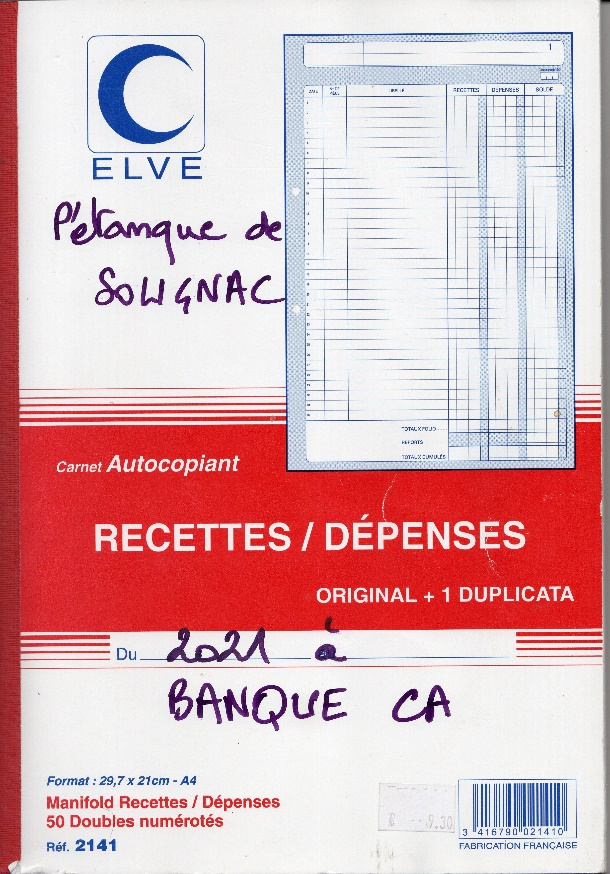 ELVE
Pétanque de
SOLIGNAC
1
DATE
RECETTES
DÉPENSES
SOLDE
TOTAUX FOLIO
REPORTS
TOTAUX CUMULÉS
Carnet Autocopiant
RECETTES / DÉPENSES
ORIGINAL + 1 DUPLICATA
Du 2021 à
BANQUE CA
Format : 29,7 x 21cm - A4
Manifold Recettes / Dépenses
50 Doubles numérotés
Réf. 2141
9.30
3 416790 021410
FABRICATION FRANÇAISE